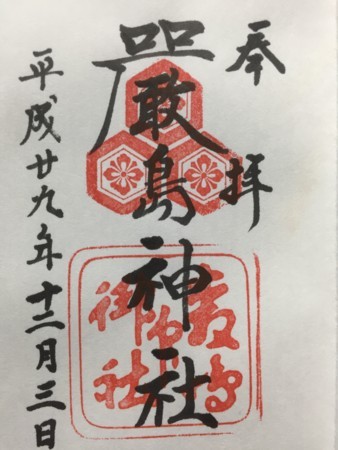 奉拝
嚴島神社
平成廿九年十二月三日